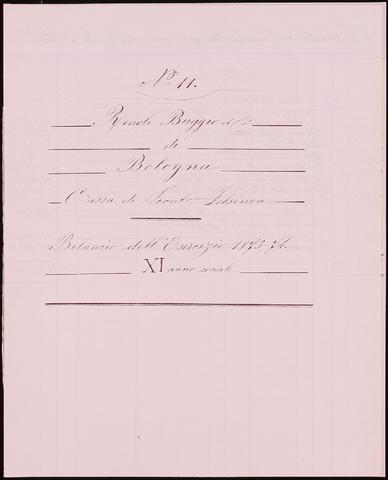 Nº 11.
Renoli Buggio e C.
di
Bologna
Cassa di Sconto Felsinea
Bilancio dell'Esercizio 1873-74.
XI anno sociale